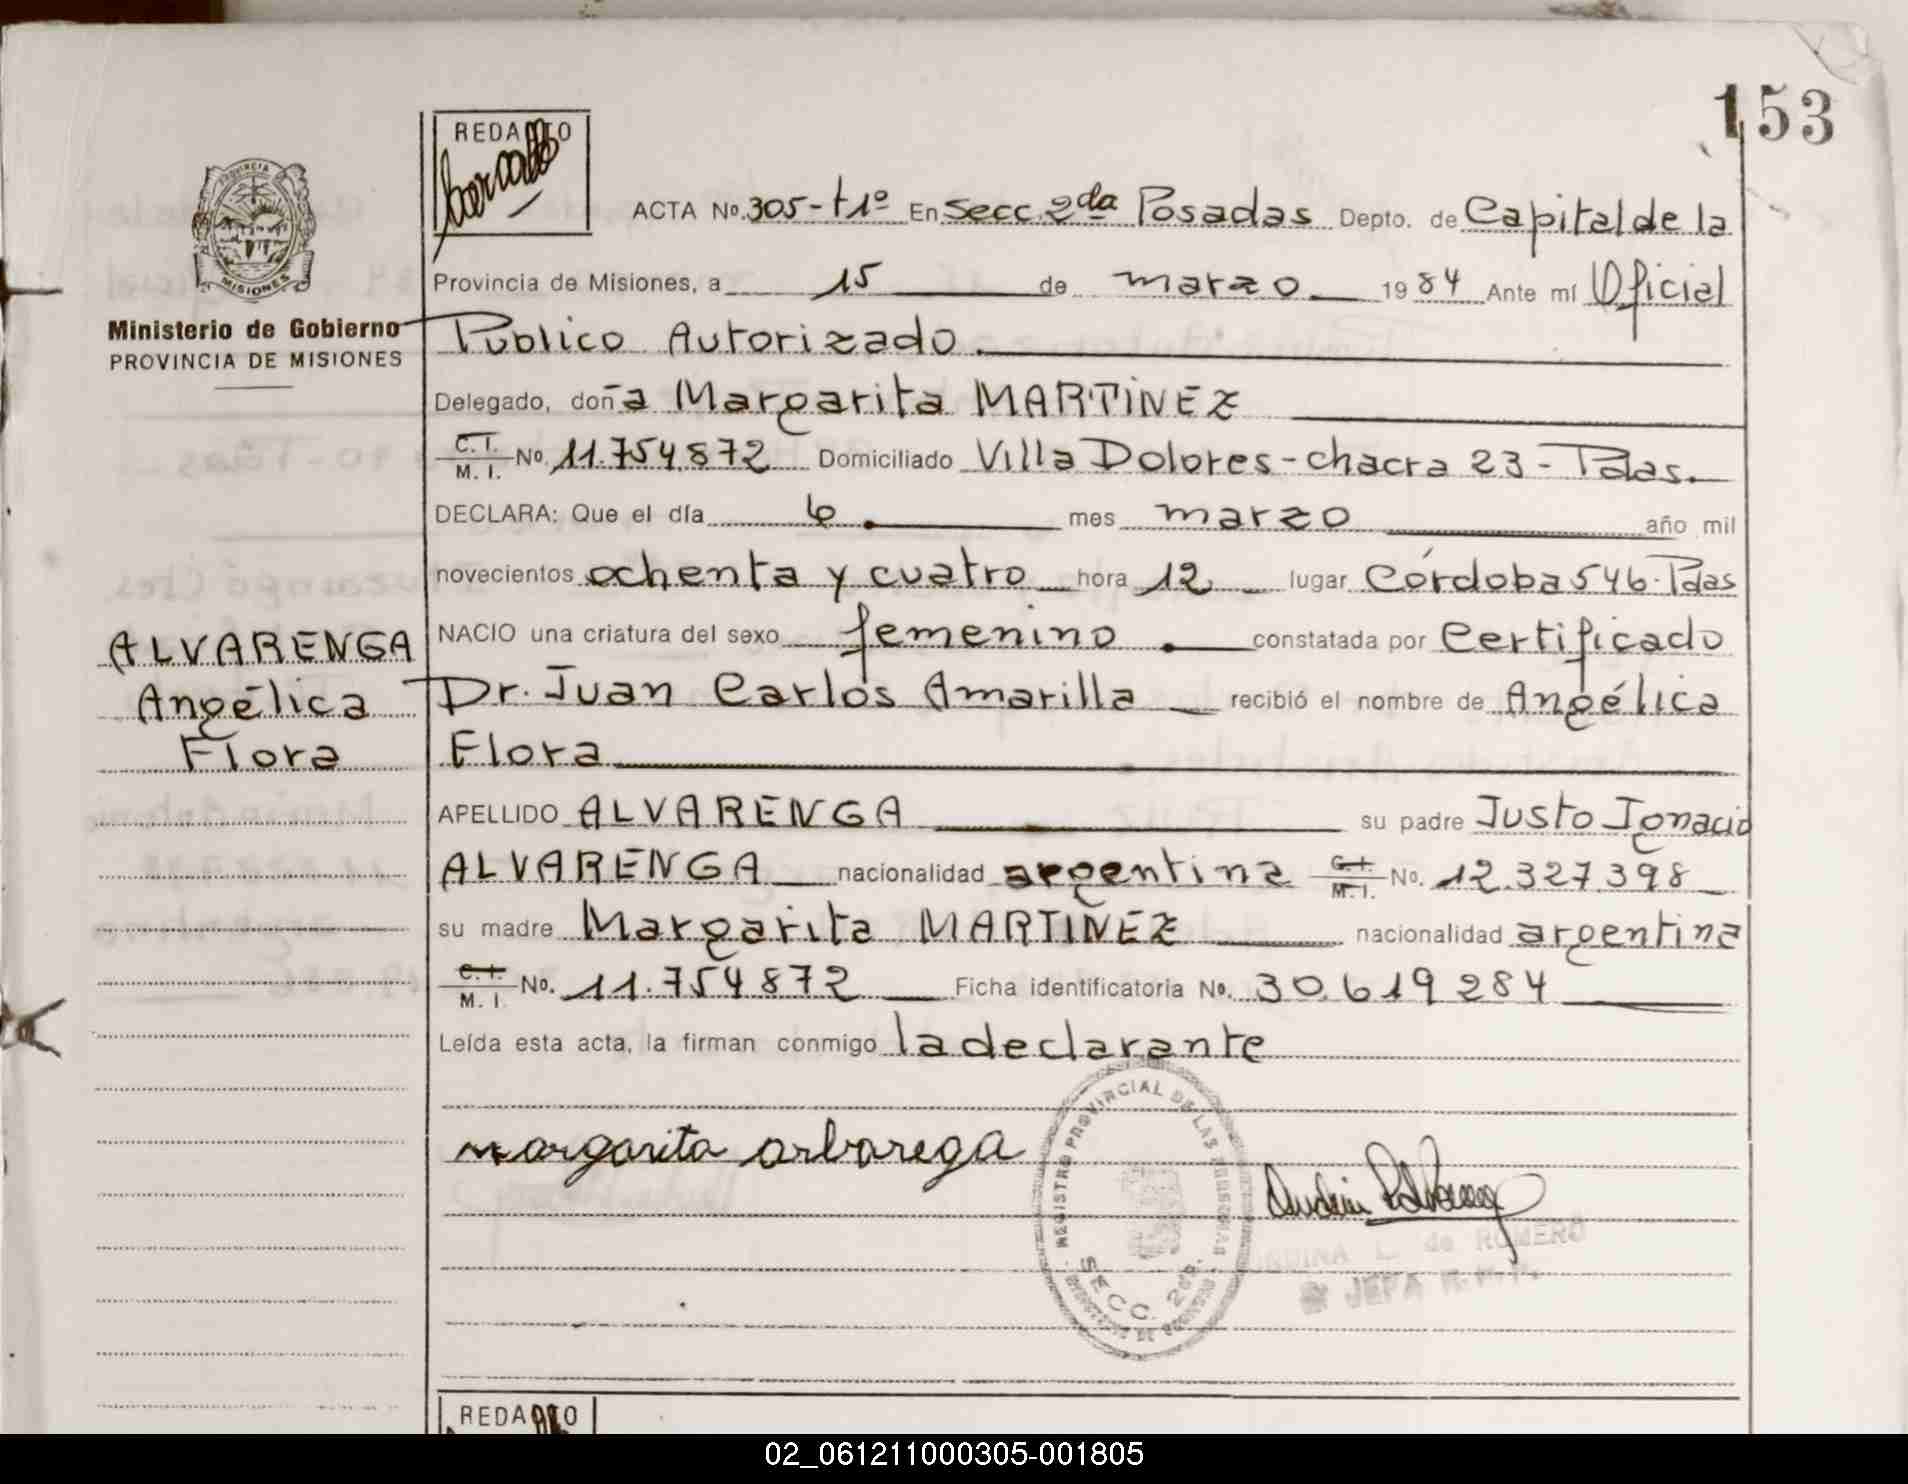 153
REDA
ACTA No. 305-t1º En Secc. 2da Posadas Depto. de Capital de la
Provincia de Misiones, a 15 de marzo 1984 Ante mí Oficial
Público Autorizado.
PROVINCIA
MISIONES
Ministerio de Gobierno
PROVINCIA DE MISIONES
Delegado, doña Margarita MARTINEZ
C. I.
M. I. No. 11.754.872 Domiciliado Villa Dolores - chacra 23 - Pdas.
DECLARA: Que el día 6 mes marzo año mil
novecientos ochenta y cuatro hora 12 lugar Córdoba 546. Pdas
NACIO una criatura del sexo femenino constatada por Certificado
Dr. Juan Carlos Amarilla recibió el nombre de Angélica
Flora
ALVARENGA
Angélica
Flora
APELLIDO ALVARENGA su padre Justo Ignacio
ALVARENGA nacionalidad argentina C. I.
M. I. No. 12.327.398
su madre Margarita MARTINEZ nacionalidad argentina
C. I.
M. I. No. 11.754872 Ficha identificatoria No. 30.619284
Leída esta acta, la firman conmigo la declarante
margarita arbarega
REGISTRO PROVINCIAL DE LAS PERSONAS
SECC. 2da.
L. de ROMERO
JEFA
REDA
02_061211000305-001805